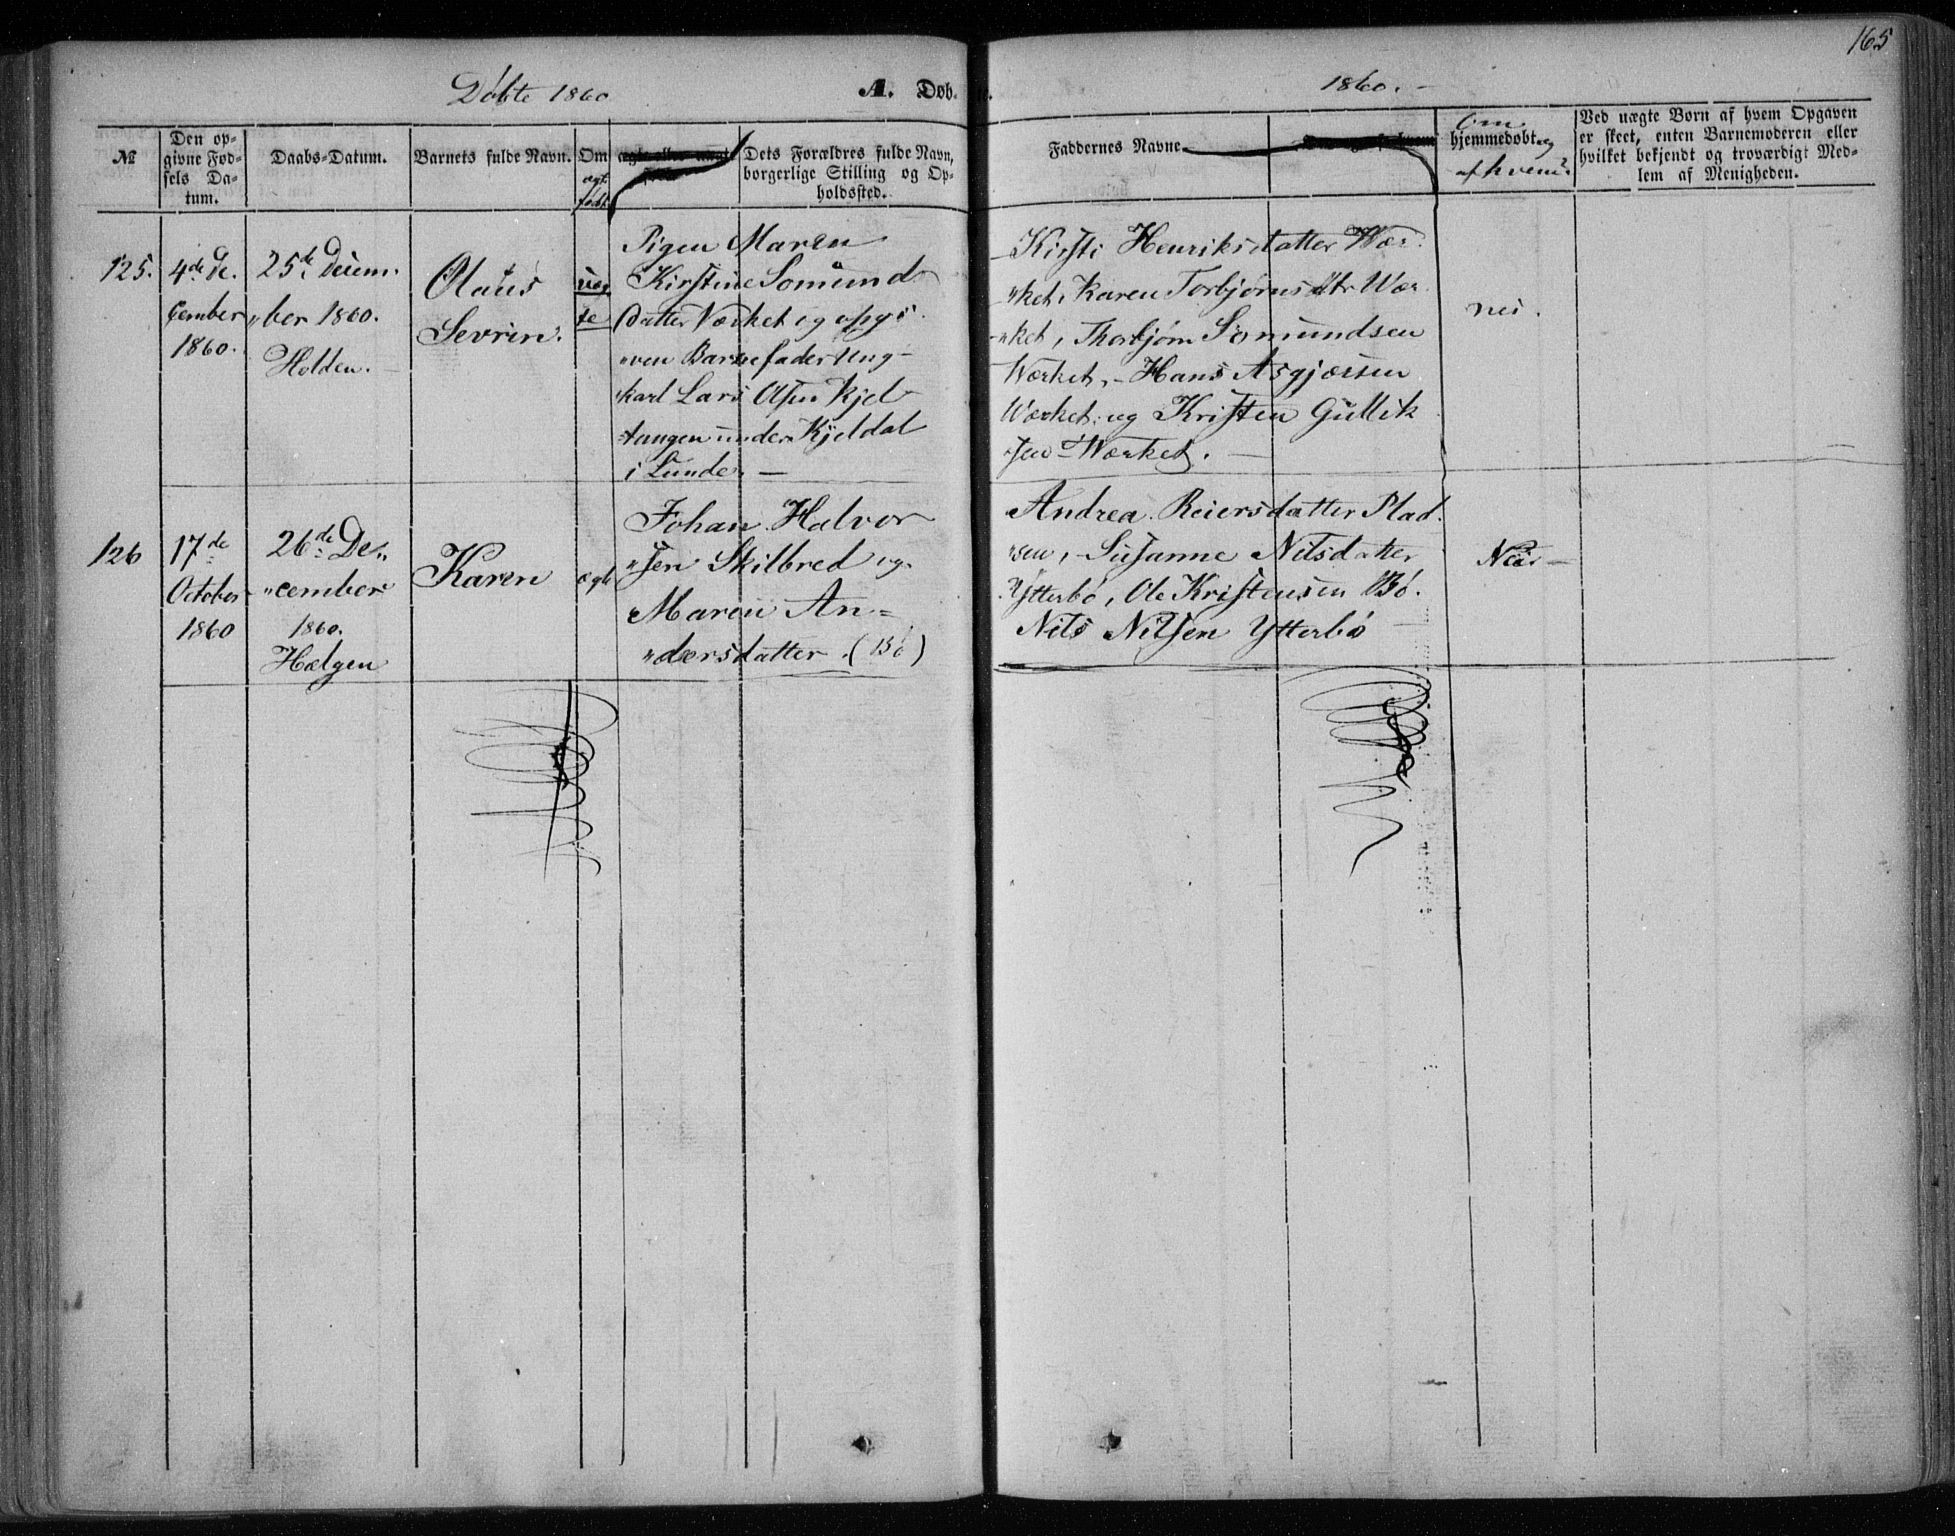 165
Döbte 1860
A. Døb-
te.
1860.-
№
Den op-
givne Fød-
sels Da-
tum.
Daabs-Datum.
Barnets fulde Navn.
Om
ægt.
født.
Dets Forældres fulde Navn,
borgerlige Stilling og Op-
holdssted.
Faddernes Navne
Om
hjemmedøbt og
af hvem?
Ved uægte Børn af hvem Opgaven
er skeet, enten Barnemoderen eller
hvilket bekjendt og troværdigt Med-
lem af Menigheden.
125.
4de De-
cember
1860.
25de Decem.
"ber 1860.
Holden.
Olaus
Sevrin.
uæg
te
Pigen Maren
Kirstine Somund
Datter Værket og opgi.
"ven Barnefader Ung-
"karl Lars Olsen Kjel
"tangen under Kjeldal
i Lunde. —
Kirsti Henriksdatter Vær.
"ket, Karen Torbjørnsdtr Vær.
"ket, Thorbjørn Somundsen
Værket, - Hans Asgjærsen
Værket, og Kristen Gullik
"sen Værket. —
nei.
126
17de
October
1860
26de De"
"cember
1860.
Hælgen
Karen
ægte
Johan Halvor
"sen Skilbred og
Maren An=
"dersdatter. (Bö)
Andrea Reiersdatter Plad.
"sen, - Susanne Nilsdatter
Ytterbö, Ole Kristensen Bö.
Nils Nilsen Ytterbö
Nei —